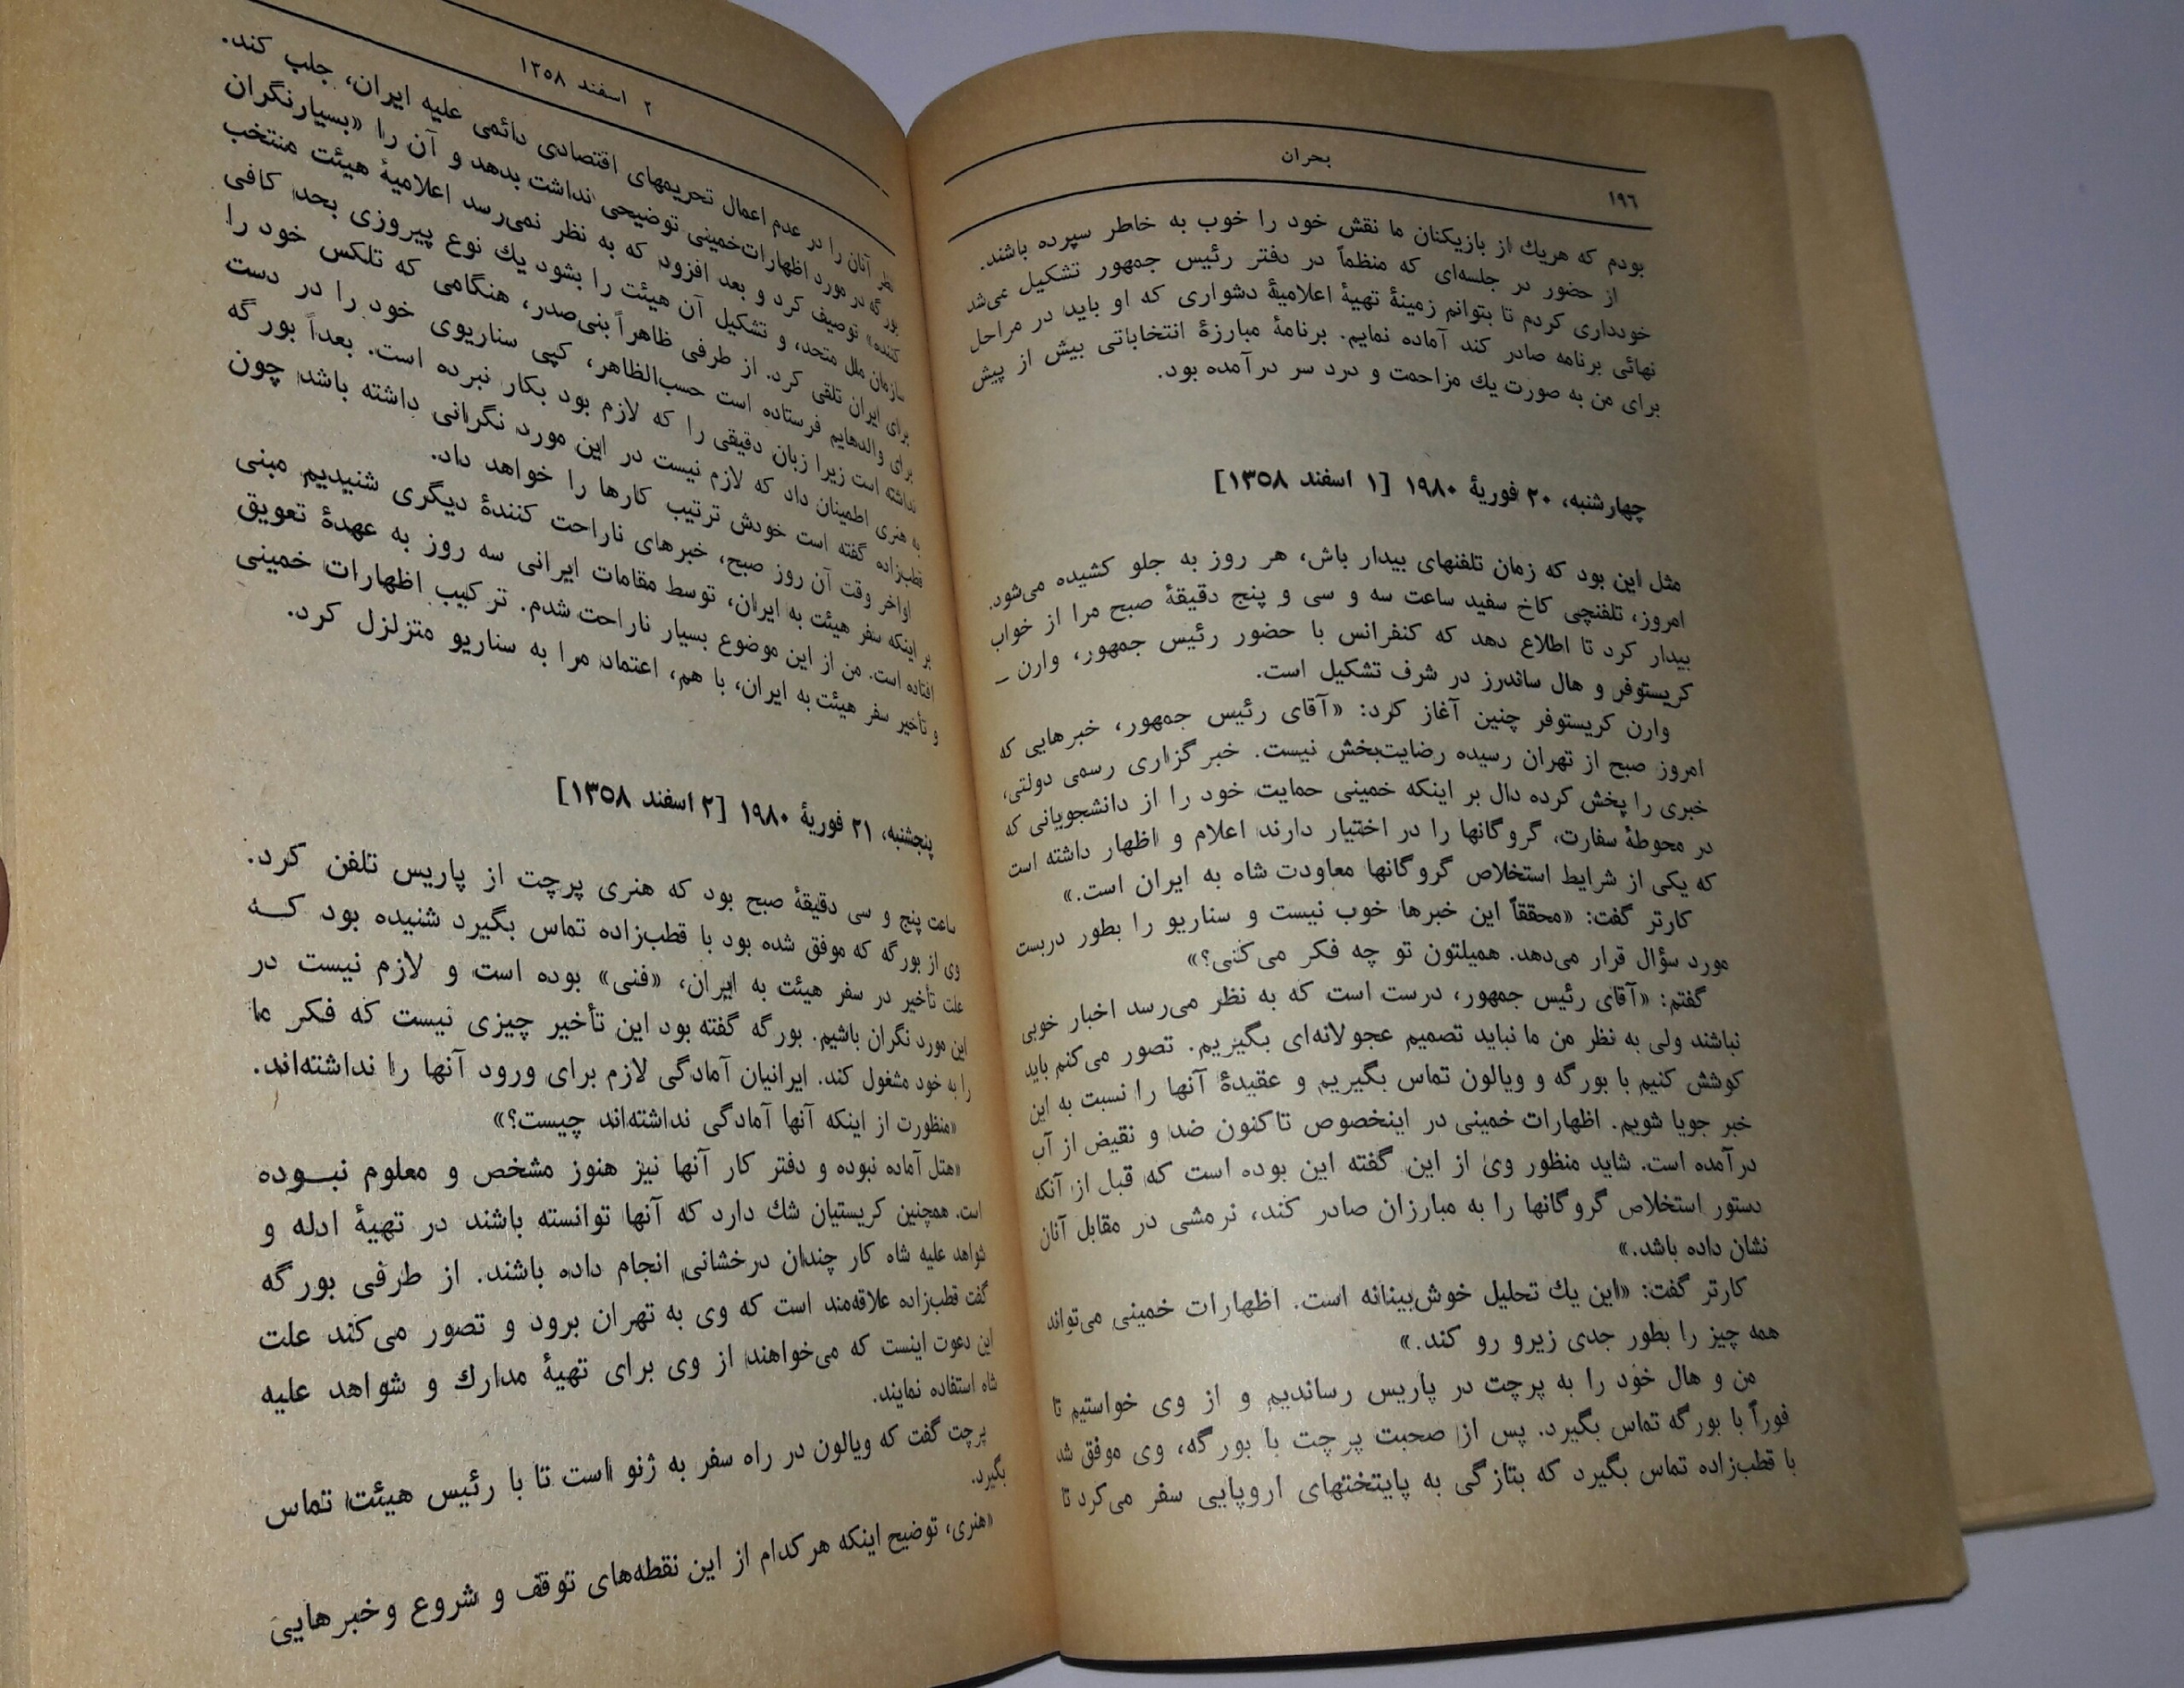 بحران
۱۹۶
بودم که هریك از بازیکنان ما نقش خود را خوب به خاطر سپرده باشند.
از حضور در جلسه‌ای که منظماً در دفتر رئیس جمهور تشکیل می‌شد
خودداری کردم تا بتوانم زمینهٔ تهیهٔ اعلامیهٔ دشواری که او باید در مراحل
نهائی برنامه صادر کند آماده نمایم. برنامهٔ مبارزهٔ انتخاباتی بیش از پیش
برای من به صورت یك مزاحمت و درد سر درآمده بود.
چهارشنبه، ۲۰ فوریهٔ ۱۹۸۰ [۱ اسفند ۱۳۵۸]
مثل این بود که زمان تلفنهای بیدار باش، هر روز به جلو کشیده می‌شود.
امروز، تلفنچی کاخ سفید ساعت سه و سی و پنج دقیقهٔ صبح مرا از خواب
بیدار کرد تا اطلاع دهد که کنفرانس با حضور رئیس جمهور، وارن –
کریستوفر و هال ساندرز در شرف تشکیل است.
وارن کریستوفر چنین آغاز کرد: «آقای رئیس جمهور، خبرهایی که
امروز صبح از تهران رسیده رضایت‌بخش نیست. خبرگزاری رسمی دولتی،
خبری را پخش کرده دال بر اینکه خمینی حمایت خود را از دانشجویانی که
در محوطهٔ سفارت، گروگانها را در اختیار دارند اعلام و اظهار داشته است
که یکی از شرایط استخلاص گروگانها معاودت شاه به ایران است.»
کارتر گفت: «محققاً این خبرها خوب نیست و سناریو را بطور دربست
مورد سؤال قرار می‌دهد. همیلتون تو چه فکر می‌کنی؟»
گفتم: «آقای رئیس جمهور، درست است که به نظر می‌رسد اخبار خوبی
نباشند ولی به نظر من ما نباید تصمیم عجولانه‌ای بگیریم. تصور می‌کنم باید
کوشش کنیم با بورگه و ویالون تماس بگیریم و عقیدهٔ آنها را نسبت به این
خبر جویا شویم. اظهارات خمینی در اینخصوص تاکنون ضد و نقیض از آب
درآمده است. شاید منظور وی از این گفته این بوده است که قبل از آنکه
دستور استخلاص گروگانها را به مبارزان صادر کند، نرمشی در مقابل آنان
نشان داده باشد.»
کارتر گفت: «این یك تحلیل خوش‌بینانه است. اظهارات خمینی می‌تواند
همه چیز را بطور جدی زیرو رو کند.»
من و هال خود را به پرچت در پاریس رساندیم و از وی خواستیم تا
فوراً با بورگه تماس بگیرد. پس از صحبت پرچت با بورگه، وی موفق شد
با قطب‌زاده تماس بگیرد که بتازگی به پایتختهای اروپایی سفر می‌کرد تا
۲ اسفند ۱۳۵۸
نظر آنان را در عدم اعمال تحریمهای اقتصادی دائمی علیه ایران، جلب کند.
بورگه در مورد اظهارات خمینی توضیحی نداشت بدهد و آن را «بسیار نگران
کننده» توصیف کرد و بعد افزود که به نظر نمی‌رسد اعلامیهٔ هیئت منتخب
سازمان ملل متحد، و تشکیل آن هیئت را بشود یك نوع پیروزی بحد کافی
برای ایران تلقی کرد. از طرفی ظاهراً بنی‌صدر، هنگامی که تلکس خود را
برای والدهایم فرستاده است حسب‌الظاهر، کپی سناریوی خود را در دست
نداشته است زیرا زبان دقیقی را که لازم بود بکار نبرده است. بعداً بورگه
به هنری اطمینان داد که لازم نیست در این مورد نگرانی داشته باشد چون
قطب‌زاده گفته است خودش ترتیب کارها را خواهد داد.
اواخر وقت آن روز صبح، خبرهای ناراحت کنندهٔ دیگری شنیدیم مبنی
بر اینکه سفر هیئت به ایران، توسط مقامات ایرانی سه روز به عهدهٔ تعویق
افتاده است. من از این موضوع بسیار ناراحت شدم. ترکیب اظهارات خمینی
و تأخیر سفر هیئت به ایران، با هم، اعتماد مرا به سناریو متزلزل کرد.
پنجشنبه، ۲۱ فوریهٔ ۱۹۸۰ [۲ اسفند ۱۳۵۸]
ساعت پنج و سی دقیقهٔ صبح بود که هنری پرچت از پاریس تلفن کرد.
وی از بورگه که موفق شده بود با قطب‌زاده تماس بگیرد شنیده بود که
علت تأخیر در سفر هیئت به ایران، «فنی» بوده است و لازم نیست در
این مورد نگران باشیم. بورگه گفته بود این تأخیر چیزی نیست که فکر ما
را به خود مشغول کند. ایرانیان آمادگی لازم برای ورود آنها را نداشته‌اند.
«منظورت از اینکه آنها آمادگی نداشته‌اند چیست؟»
«هتل آماده نبوده و دفتر کار آنها نیز هنوز مشخص و معلوم نبوده
است. همچنین کریستیان شك دارد که آنها توانسته باشند در تهیهٔ ادله و
شواهد علیه شاه کار چندان درخشانی انجام داده باشند. از طرفی بورگه
گفت قطب‌زاده علاقه‌مند است که وی به تهران برود و تصور می‌کند علت
این دعوت اینست که می‌خواهند از وی برای تهیهٔ مدارك و شواهد علیه
شاه استفاده نمایند.
پرچت گفت که ویالون در راه سفر به ژنو است تا با رئیس هیئت تماس
بگیرد.
«هنری، توضیح اینکه هرکدام از این نقطه‌های توقف و شروع وخبرهایی